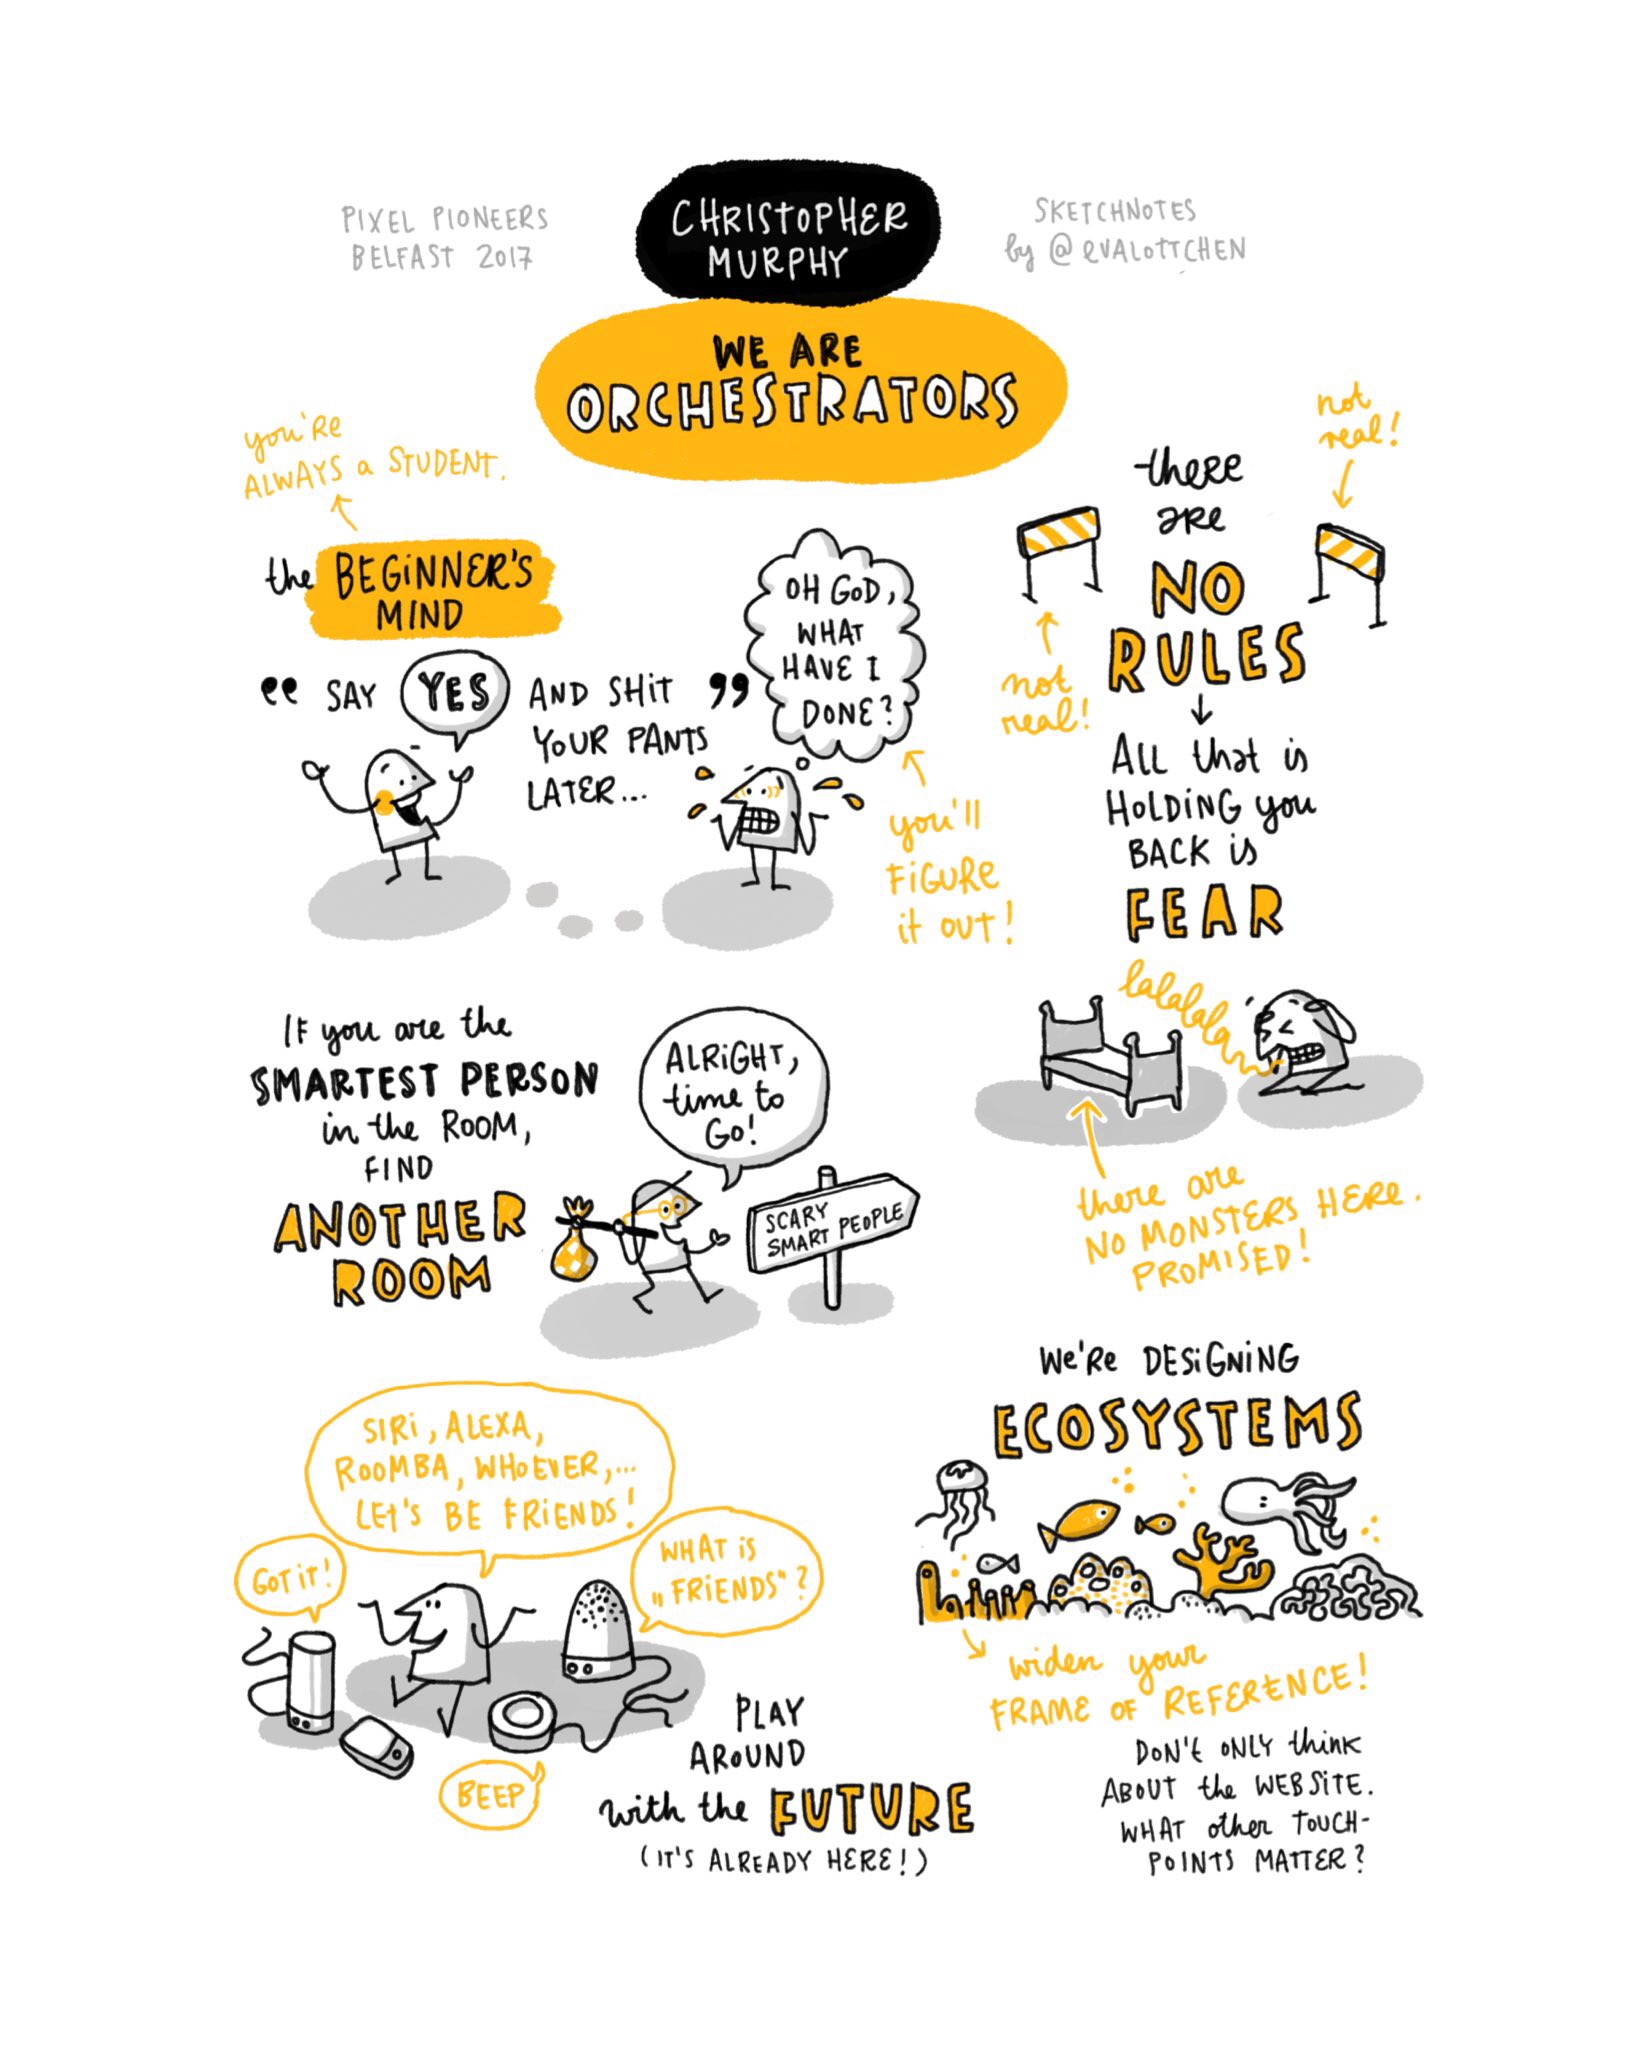 PIXEL PIONEERS
BELFAST 2017
CHRISTOPHER
MURPHY
SKETCHNOTES
by @evalottchen
WE ARE
ORCHESTRATORS
you're
ALWAYS a STUDENT.
the BEGINNER'S
MIND
„ SAY YES AND SHIT ”
YOUR PANTS
LATER...
OH GOD,
WHAT
HAVE I
DONE?
you'll
FIGURE
it OUT!
not
real!
there
are
NO
RULES
not
real!
All that is
HOLDING you
BACK is
FEAR
lalalalala
there are
NO MONSTERS HERE.
PROMISED!
IF you are the
SMARTEST PERSON
in the ROOM,
FIND
ANOTHER
ROOM
ALRIGHT,
time to
GO!
SCARY
SMART PEOPLE
SIRI, ALEXA,
ROOMBA, WHOEVER,...
LET'S BE FRIENDS!
GOT IT!
WHAT is
„FRIENDS“?
BEEP
PLAY
AROUND
with the FUTURE
(IT'S ALREADY HERE!)
We're DESIGNING
ECOSYSTEMS
widen your
FRAME OF REFERENCE!
DON'T ONLY think
ABOUT the WEBSITE.
WHAT other TOUCH-
POINTS MATTER?